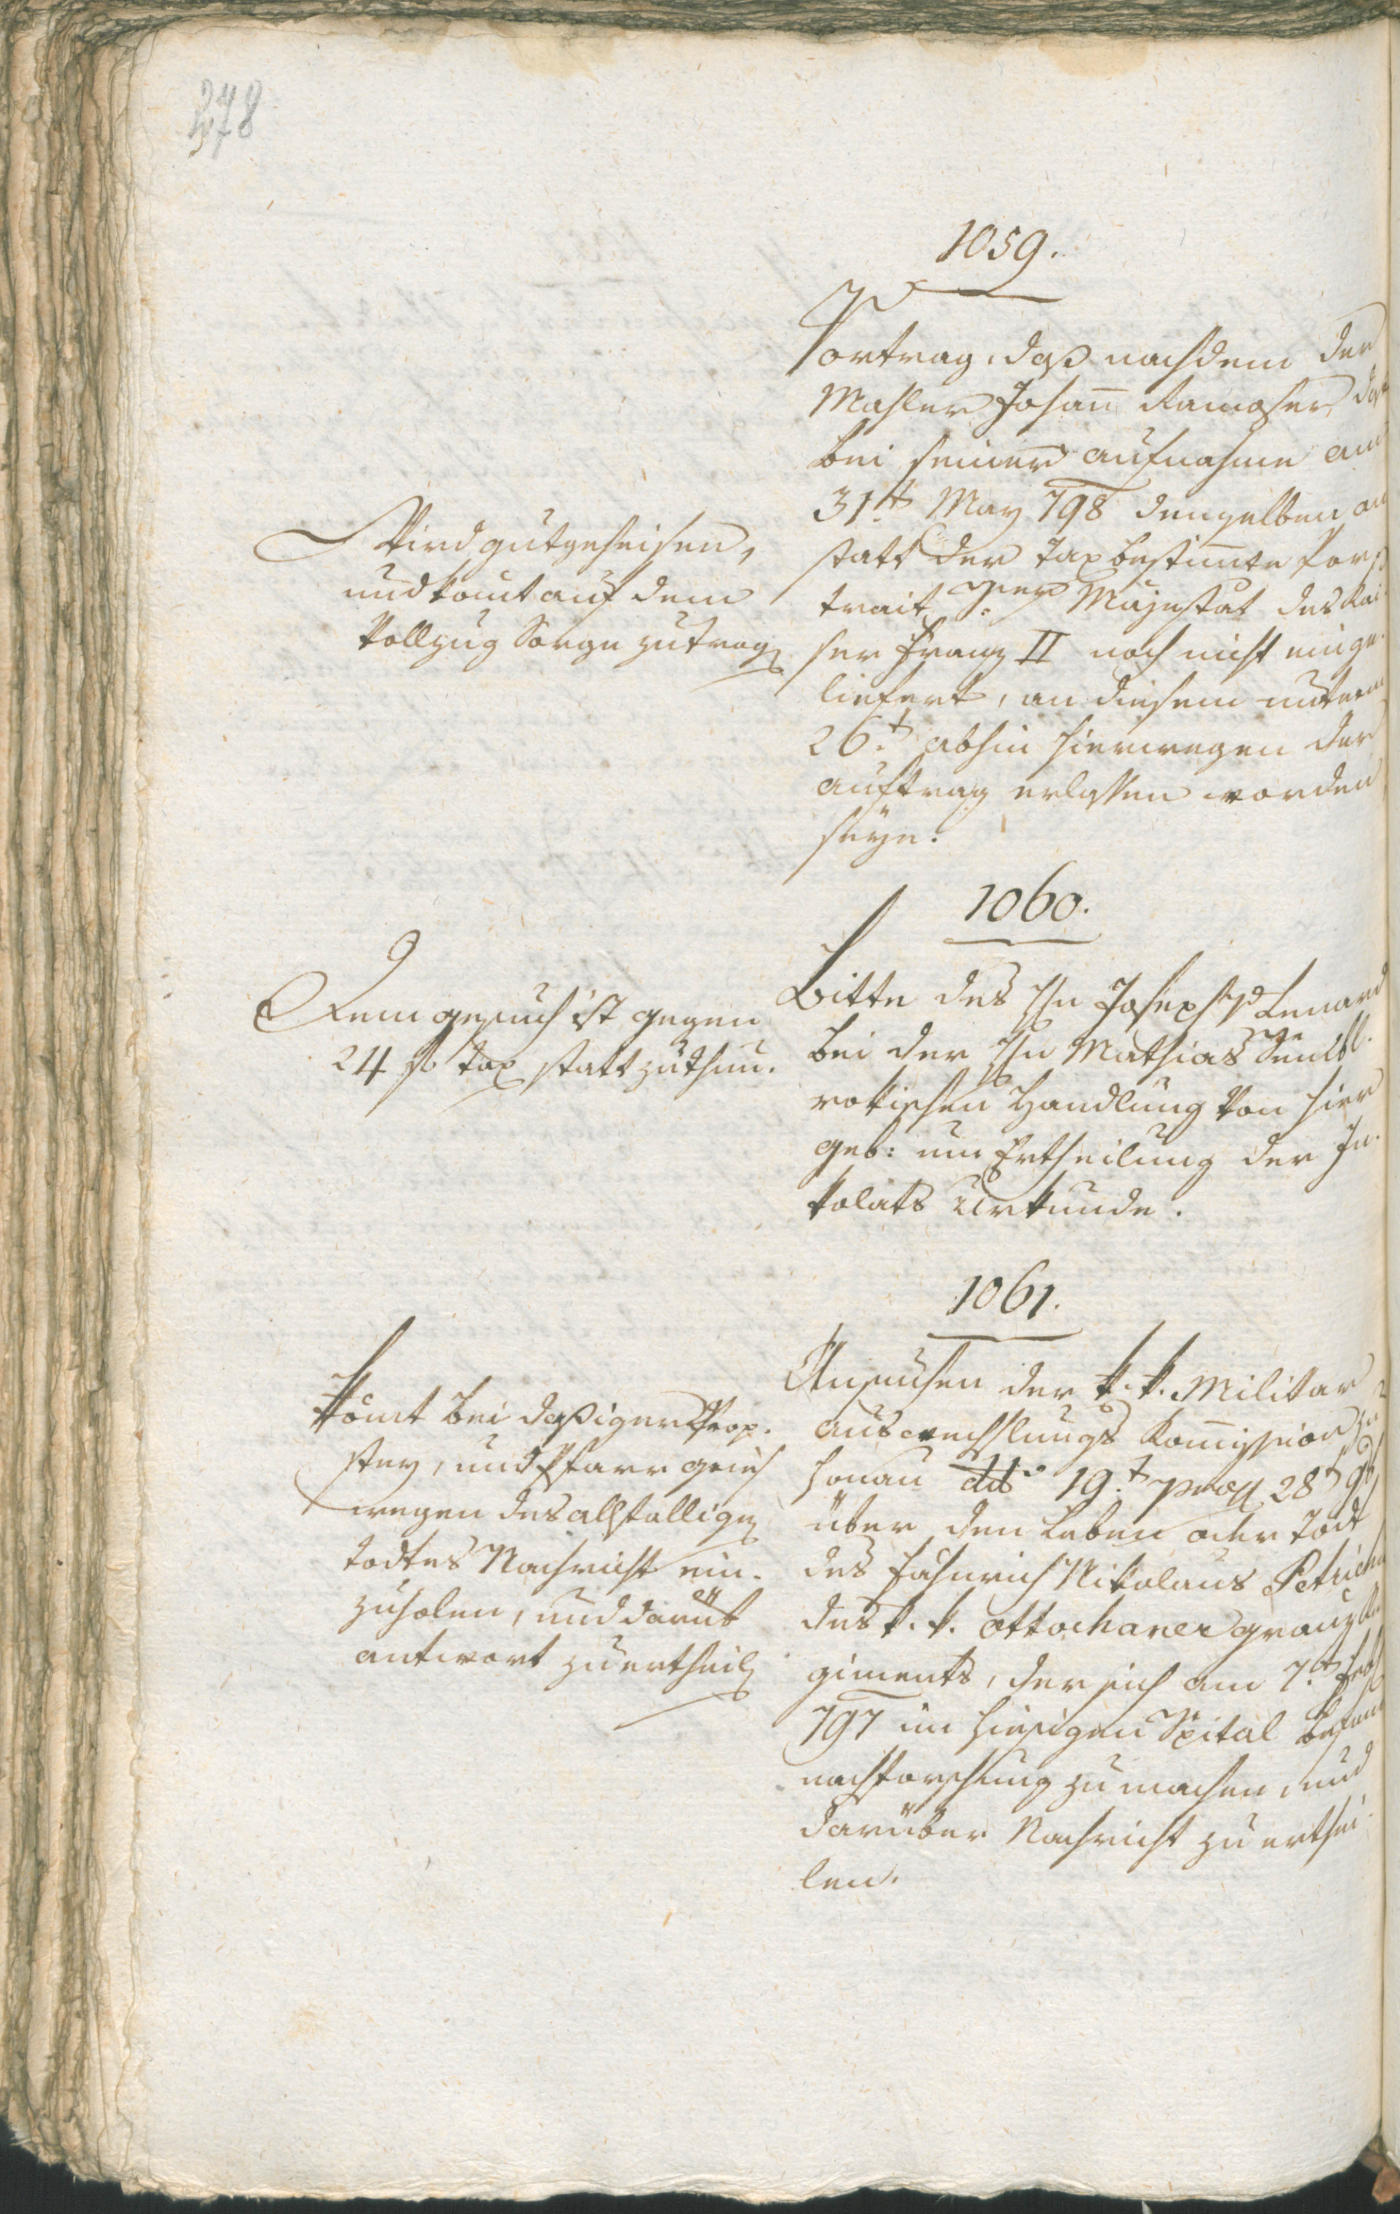 278
1059.
Vortrag, daß nachdem der
Mahler Johann Ramoser, das
bei seiner aufnahme am
31.t May 798 demselben an
statt der Tax bestimte Por-
trait Sr. Majestät des Kai-
ser Franz II noch nicht einge-
liefert, an diesem unterm
26.t abhin hierwegen der
auftrag erlassen worden
seye.
Wird gutgeheisen,
und komt auf dem
Vollzug Sorge zu tragen
1060.
Bitte des Hn Joseph Lenard
bei der Hn Mathias
rokischen Handlung von hier
geb: um Ertheilung der In-
kolats Urkunde.
Dem gesuch ist gegen
24 f Tax statt zu thun.
1061.
Ansuchen der k. k. Militar
auswechslungs Kommission zu
honau ddo 19.t 28t
über den Leben oder Todt
des Fähnrich Nikolaus Petrich
des k. k. ottochaner granz Re-
giments, der sich am 7.t
797 im hiesigen Spital befand
nachforschung zu machen, und
darüber Nachricht zu erthei-
len.
Kömt bei daßiger Prop-
stey, und Pfarr
wegen des allfälligen
todtes Nachricht ein-
zuholen, und darüb
antwort zu ertheilen